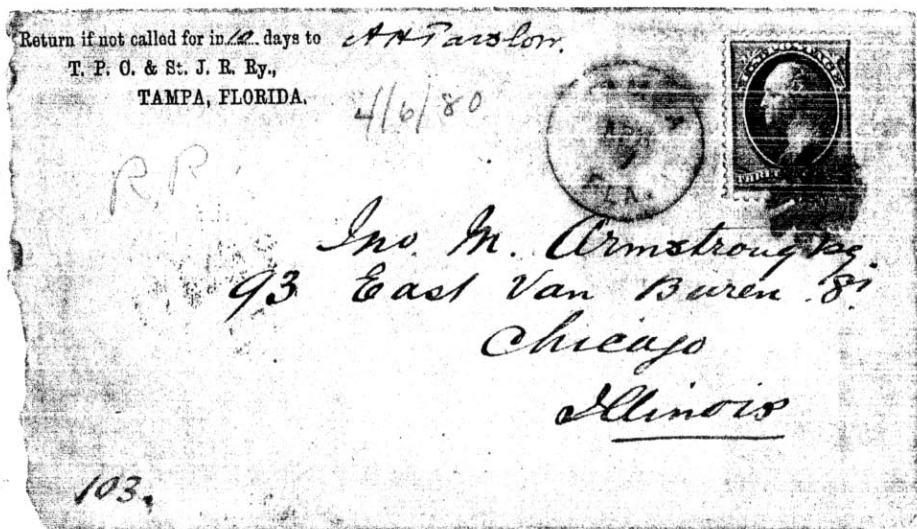 Return if not called for in 10 days to A H Parslow.
T. P. O. & St. J. R. Ry.,
TAMPA, FLORIDA.
4/6/80
FLA.
THREE
R.R.
Jno. M. Armstrong
93 East Van Buren St
Chicago
Illinois
103.